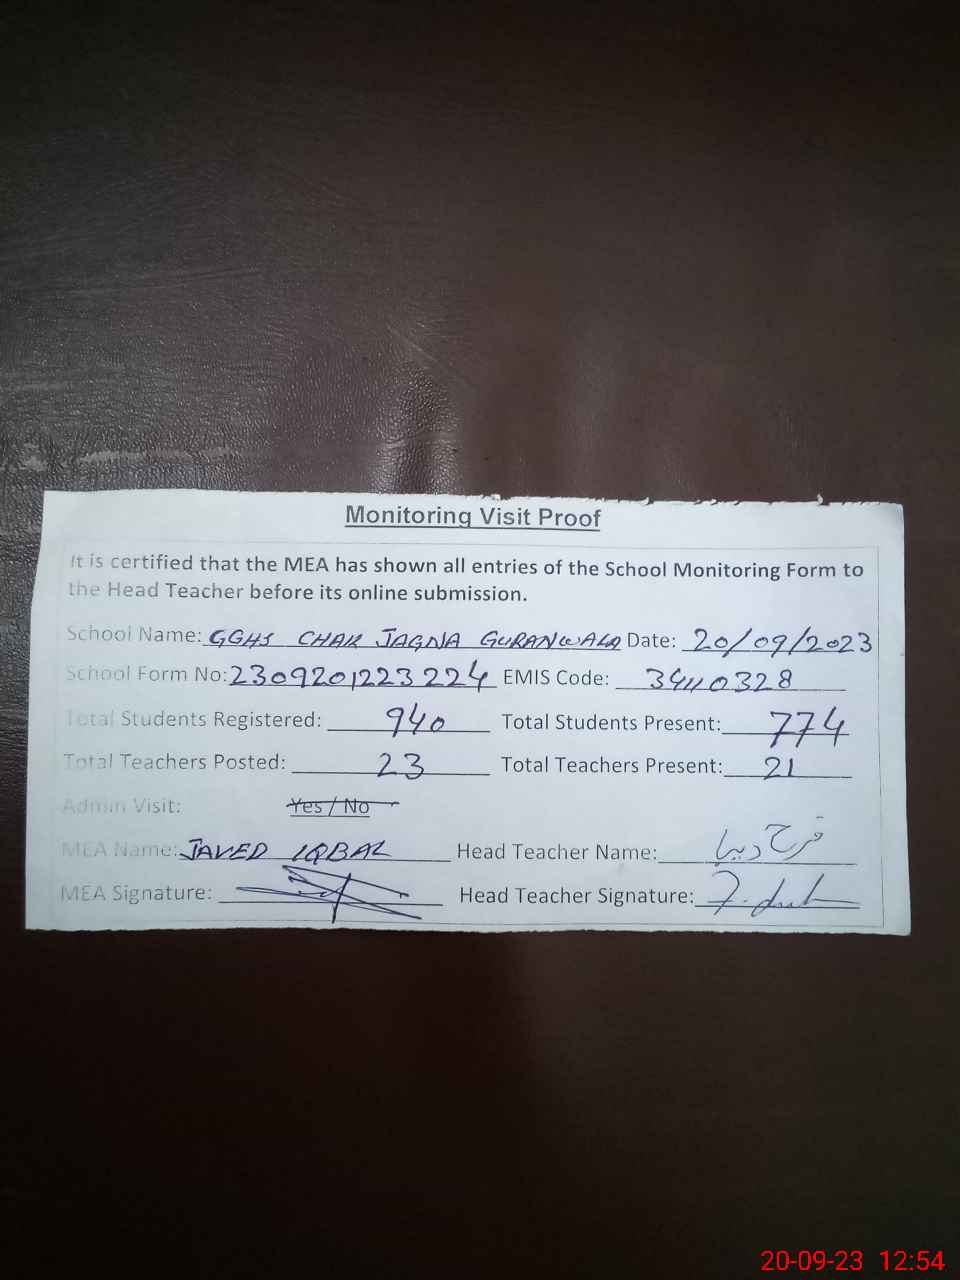 Monitoring Visit Proof
It is certified that the MEA has shown all entries of the School Monitoring Form to
the Head Teacher before its online submission.
School Name: GGHS CHAK JAGNA GURANWALA Date: 20/09/2023
School Form No: 2309201223224 EMIS Code: 34110328
Total Students Registered: 940 Total Students Present: 774
Total Teachers Posted: 23 Total Teachers Present: 21
Admin Visit: Yes / No
MEA Name: JAVED IQBAL Head Teacher Name: فرح دیبا
MEA Signature: Head Teacher Signature:
20-09-23 12:54